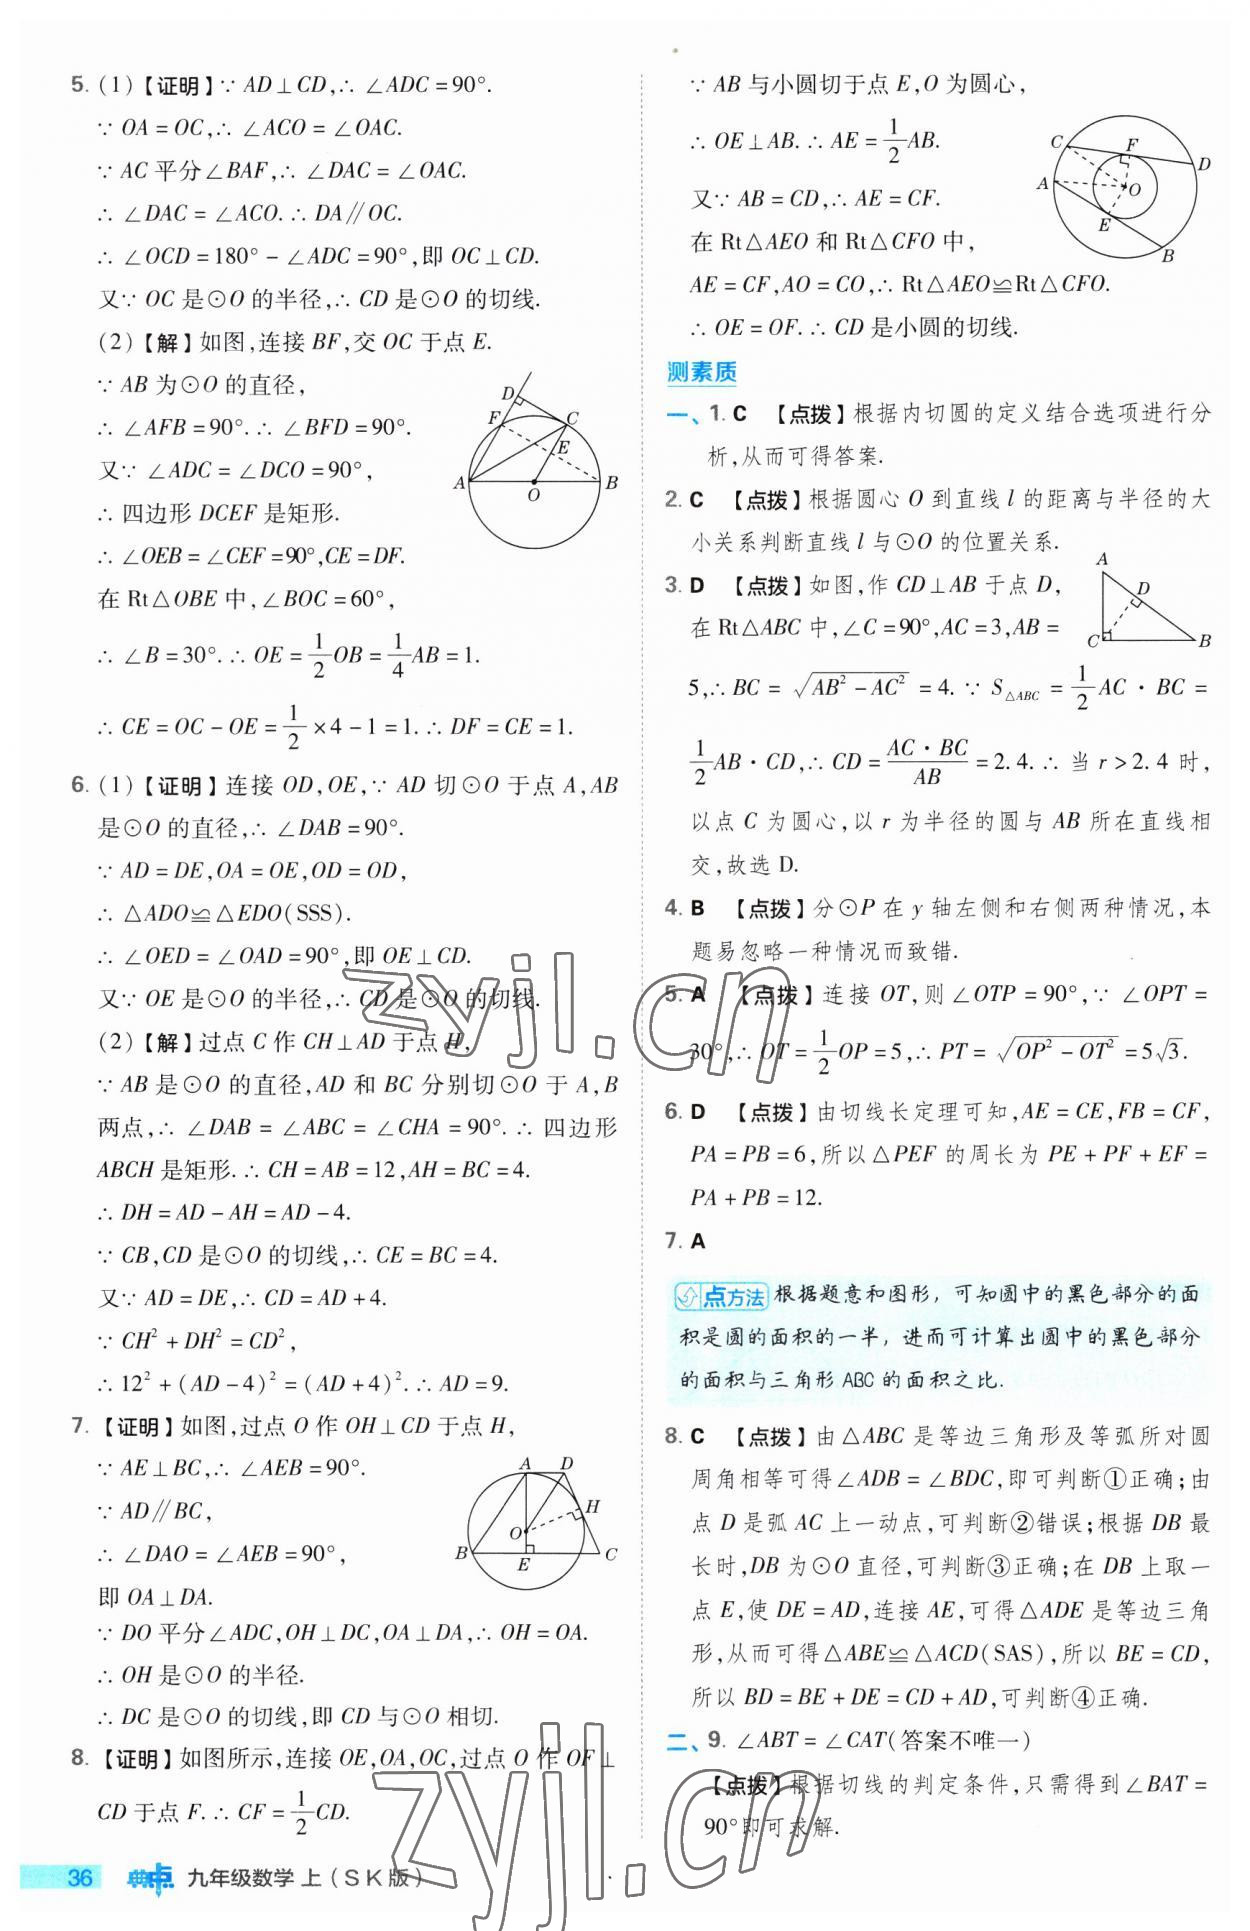 5. (1)【证明】∵ AD⊥CD,∴ ∠ADC=90°.
∵ OA=OC,∴ ∠ACO=∠OAC.
∵ AC 平分∠BAF,∴ ∠DAC=∠OAC.
∴ ∠DAC=∠ACO.∴ DA∥OC.
∴ ∠OCD=180°-∠ADC=90°,即 OC⊥CD.
又∵ OC 是⊙O 的半径,∴ CD 是⊙O 的切线.
(2)【解】如图,连接 BF,交 OC 于点 E.
∵ AB 为⊙O 的直径,
∴ ∠AFB=90°.∴ ∠BFD=90°.
又∵ ∠ADC=∠DCO=90°,
∴ 四边形 DCEF 是矩形.
∴ ∠OEB=∠CEF=90°,CE=DF.
在 Rt△OBE 中,∠BOC=60°,
∴ ∠B=30°.∴ OE=1/2 OB=1/4 AB=1.
∴ CE=OC-OE=1/2×4-1=1.∴ DF=CE=1.
D
F
C
E
A
O
B
6. (1)【证明】连接 OD,OE,∵ AD 切⊙O 于点 A,AB
是⊙O 的直径,∴ ∠DAB=90°.
∵ AD=DE,OA=OE,OD=OD,
∴ △ADO≌△EDO(SSS).
∴ ∠OED=∠OAD=90°,即 OE⊥CD.
又∵ OE 是⊙O 的半径,∴ CD 是⊙O 的切线.
(2)【解】过点 C 作 CH⊥AD 于点 H,
∵ AB 是⊙O 的直径,AD 和 BC 分别切⊙O 于 A,B
两点,∴ ∠DAB=∠ABC=∠CHA=90°.∴ 四边形
ABCH 是矩形.∴ CH=AB=12,AH=BC=4.
∴ DH=AD-AH=AD-4.
∵ CB,CD 是⊙O 的切线,∴ CE=BC=4.
又∵ AD=DE,∴ CD=AD+4.
∵ CH²+DH²=CD²,
∴ 12²+(AD-4)²=(AD+4)².∴ AD=9.
7. 【证明】如图,过点 O 作 OH⊥CD 于点 H,
∵ AE⊥BC,∴ ∠AEB=90°.
∵ AD∥BC,
∴ ∠DAO=∠AEB=90°,
即 OA⊥DA.
∵ DO 平分∠ADC,OH⊥DC,OA⊥DA,∴ OH=OA.
∴ OH 是⊙O 的半径.
∴ DC 是⊙O 的切线,即 CD 与⊙O 相切.
A D
H
O
B E C
8. 【证明】如图所示,连接 OE,OA,OC,过点 O 作 OF⊥
CD 于点 F.∴ CF=1/2 CD.
∵ AB 与小圆切于点 E,O 为圆心,
∴ OE⊥AB.∴ AE=1/2 AB.
又∵ AB=CD,∴ AE=CF.
在 Rt△AEO 和 Rt△CFO 中,
AE=CF,AO=CO,∴ Rt△AEO≌Rt△CFO.
∴ OE=OF.∴ CD 是小圆的切线.
C
F
D
A
O
E
B
测素质
一、1. C 【点拨】根据内切圆的定义结合选项进行分
析,从而可得答案.
2. C 【点拨】根据圆心 O 到直线 l 的距离与半径的大
小关系判断直线 l 与⊙O 的位置关系.
3. D 【点拨】如图,作 CD⊥AB 于点 D,
在 Rt△ABC 中,∠C=90°,AC=3,AB=
5,∴ BC=√(AB²-AC²)=4.∵ S△ABC=1/2 AC·BC=
1/2 AB·CD,∴ CD=AC·BC/AB=2.4.∴ 当 r>2.4 时,
以点 C 为圆心,以 r 为半径的圆与 AB 所在直线相
交,故选 D.
A
D
C
B
4. B 【点拨】分⊙P 在 y 轴左侧和右侧两种情况,本
题易忽略一种情况而致错.
5. A 【点拨】连接 OT,则∠OTP=90°,∵ ∠OPT=
30°,∴ OT=1/2 OP=5,∴ PT=√(OP²-OT²)=5√3.
6. D 【点拨】由切线长定理可知,AE=CE,FB=CF,
PA=PB=6,所以△PEF 的周长为 PE+PF+EF=
PA+PB=12.
7. A
点方法 根据题意和图形，可知圆中的黑色部分的面
积是圆的面积的一半，进而可计算出圆中的黑色部分
的面积与三角形 ABC 的面积之比.
8. C 【点拨】由△ABC 是等边三角形及等弧所对圆
周角相等可得∠ADB=∠BDC,即可判断①正确;由
点 D 是弧 AC 上一动点,可判断②错误;根据 DB 最
长时,DB 为⊙O 直径,可判断③正确;在 DB 上取一
点 E,使 DE=AD,连接 AE,可得△ADE 是等边三角
形,从而可得△ABE≌△ACD(SAS),所以 BE=CD,
所以 BD=BE+DE=CD+AD,可判断④正确.
二、9. ∠ABT=∠CAT(答案不唯一)
【点拨】根据切线的判定条件,只需得到∠BAT=
90°即可求解.
36 典点 九年级数学 上(SK版)
zyjl.cn
zyjl.cn